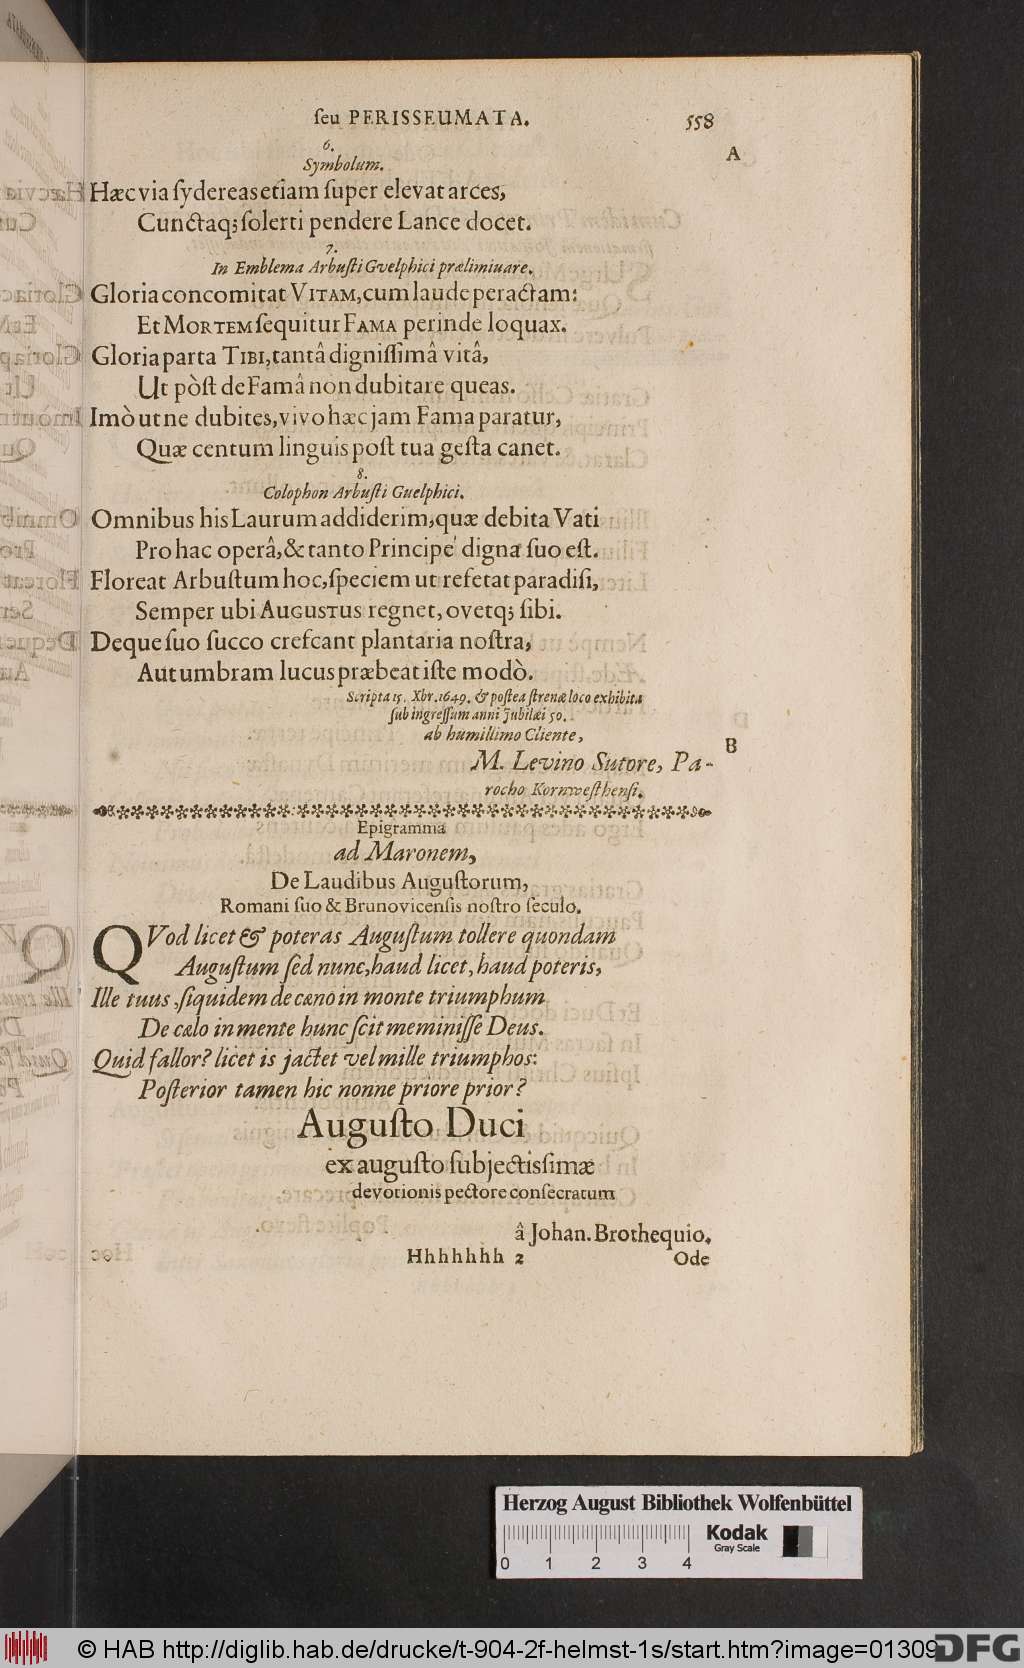 seu PERISSEUMATA.
558
6.
A
Symbolum.
Hæc via sydereas etiam super elevat arces,
Cunctaq; solerti pendere Lance docet.
7.
In Emblema Arbusti Gvelphici prælimiuare.
Gloria concomitat VITAM, cum laude peractam:
Et MORTEM sequitur FAMA perinde loquax.
Gloria parta TIBI, tantâ dignissimâ vitâ,
Ut pòst de Famâ non dubitare queas.
Imò ut ne dubites, vivo hæc jam Fama paratur,
Quæ centum linguis post tua gesta canet.
8.
Colophon Arbusti Guelphici.
Omnibus his Laurum addiderim, quæ debita Vati
Pro hac operâ, & tanto Principe digna suo est.
Floreat Arbustum hoc, speciem ut refetat paradisi,
Semper ubi AUGUSTUS regnet, ovetq; sibi.
Deque suo succo crescant plantaria nostra,
Aut umbram lucus præbeat iste modò.
Scripta 15. Xbr. 1649. & postea strenæ loco exhibita
sub ingressum anni Jubilæi 50.
ab humillimo Cliente,
B
M. Levino Sutore, Pa-
rocho Kornwesthensi.
Epigramma
ad Maronem,
De Laudibus Augustorum,
Romani suo & Brunovicensis nostro seculo.
QVod licet & poteras Augustum tollere quondam
Augustum sed nunc, haud licet, haud poteris,
Ille tuus, siquidem de cæno in monte triumphum
De cælo in mente hunc scit meminisse Deus.
Quid fallor? licet is jactet vel mille triumphos:
Posterior tamen hic nonne priore prior?
Augusto Duci
ex augusto subjectissimæ
devotionis pectore consecratum
â Johan. Brothequio.
Hhhhhhh 2
Ode
Herzog August Bibliothek Wolfenbüttel
Kodak
Gray Scale
0 1 2 3 4
© HAB http://diglib.hab.de/drucke/t-904-2f-helmst-1s/start.htm?image=01309
DFG